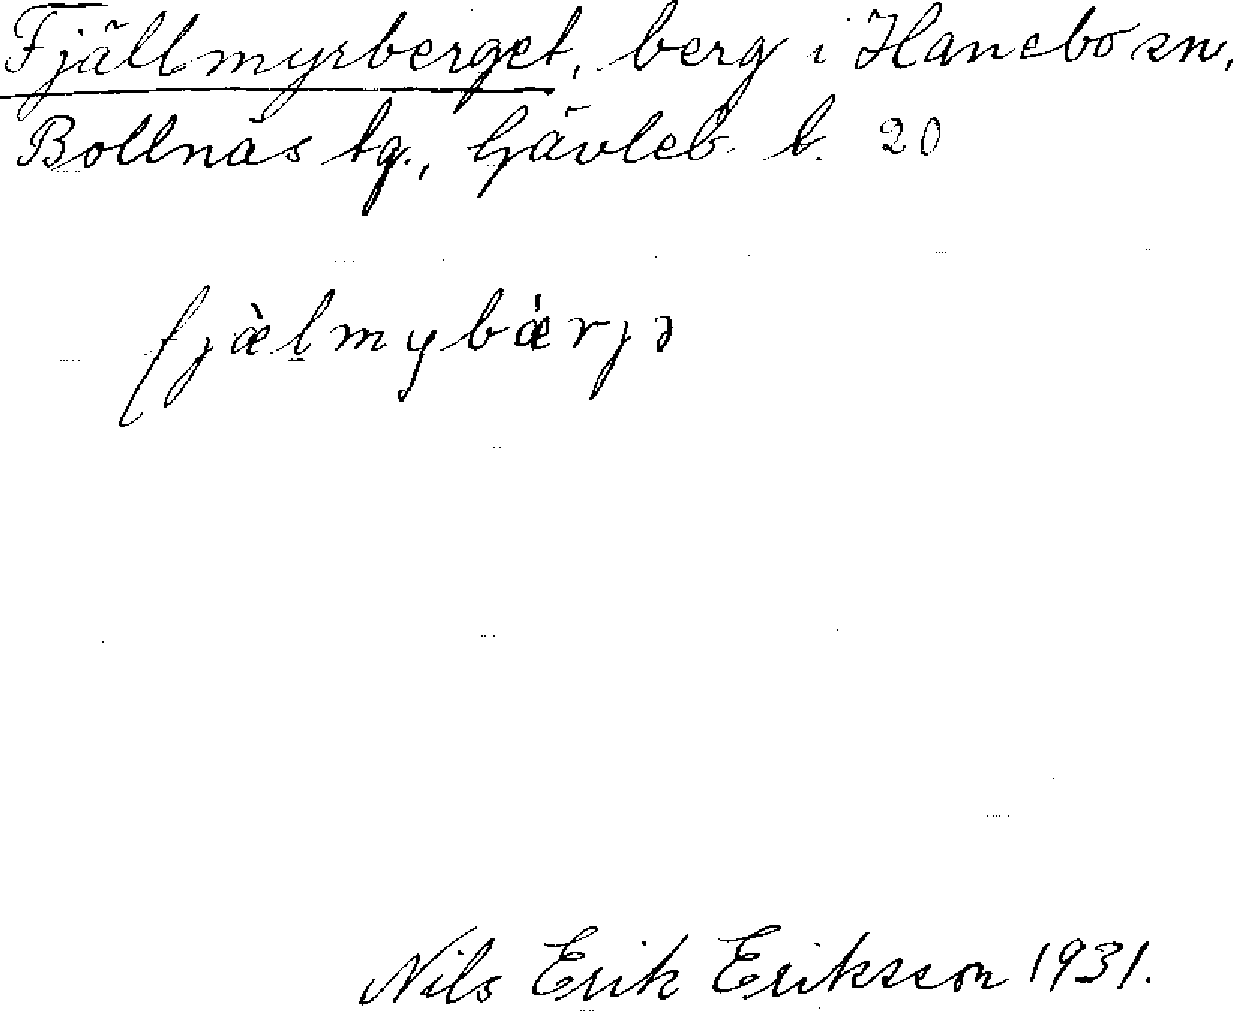 Fjällmyrberget, berg i Hanebo sn,
Bollnäs tg., Gävleb. l. 20
fjæ̀l̠mybǽrjə
Nils Erik Eriksson 1931.